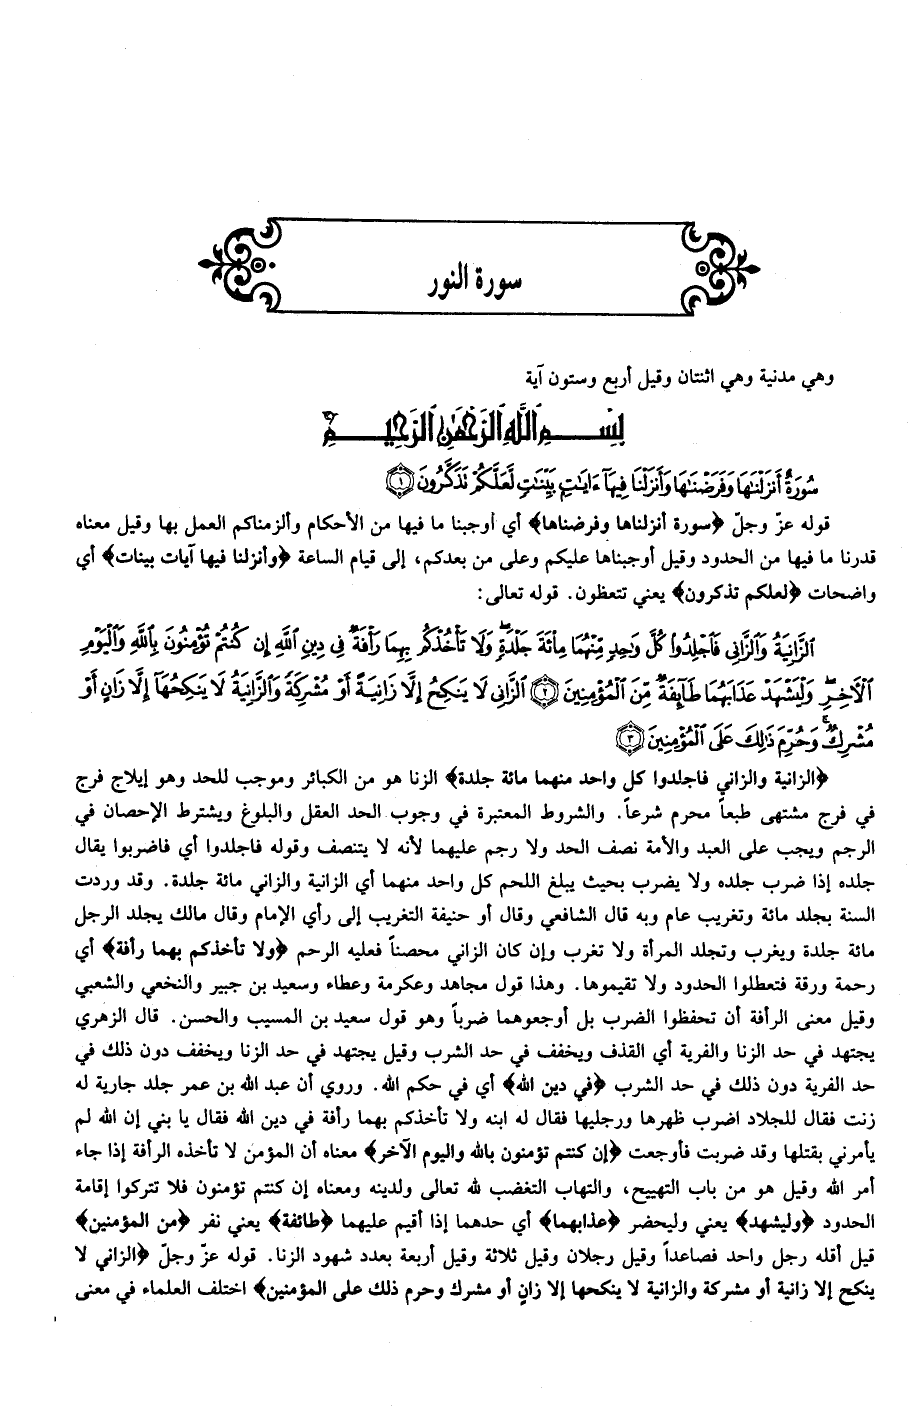 سورة النور
وهي مدنية وهي اثنتان وقيل أربع وستون آية
بِسْمِ اللَّهِ الرَّحْمَٰنِ الرَّحِيمِ
سُورَةٌ أَنزَلْنَٰهَا وَفَرَضْنَٰهَا وَأَنزَلْنَا فِيهَآ ءَايَٰتٍۭ بَيِّنَٰتٍ لَّعَلَّكُمْ تَذَكَّرُونَ ۝١
قوله عزّ وجلّ ﴿سورة أنزلناها وفرضناها﴾ أي أوجبنا ما فيها من الأحكام وألزمناكم العمل بها وقيل معناه
قدرنا ما فيها من الحدود وقيل أوجبناها عليكم وعلى من بعدكم، إلى قيام الساعة ﴿وأنزلنا فيها آيات بينات﴾ أي
واضحات ﴿لعلكم تذكرون﴾ يعني تتعظون. قوله تعالى:
الزَّانِيَةُ وَالزَّانِي فَاجْلِدُوا كُلَّ وَٰحِدٍ مِّنْهُمَا مِائَةَ جَلْدَةٍ ۖ وَلَا تَأْخُذْكُم بِهِمَا رَأْفَةٌ فِي دِينِ اللَّهِ إِن كُنتُمْ تُؤْمِنُونَ بِاللَّهِ وَالْيَوْمِ
الْآخِرِ ۖ وَلْيَشْهَدْ عَذَابَهُمَا طَآئِفَةٌ مِّنَ الْمُؤْمِنِينَ ۝٢ الزَّانِي لَا يَنكِحُ إِلَّا زَانِيَةً أَوْ مُشْرِكَةً وَالزَّانِيَةُ لَا يَنكِحُهَآ إِلَّا زَانٍ أَوْ
مُشْرِكٌ ۚ وَحُرِّمَ ذَٰلِكَ عَلَى الْمُؤْمِنِينَ ۝٣
﴿الزانية والزاني فاجلدوا كل واحد منهما مائة جلدة﴾ الزنا هو من الكبائر وموجب للحد وهو إيلاج فرج
في فرج مشتهى طبعاً محرم شرعاً. والشروط المعتبرة في وجوب الحد العقل والبلوغ ويشترط الإحصان في
الرجم ويجب على العبد والأمة نصف الحد ولا رجم عليهما لأنه لا يتنصف وقوله فاجلدوا أي فاضربوا يقال
جلده إذا ضرب جلده ولا يضرب بحيث يبلغ اللحم كل واحد منهما أي الزانية والزاني مائة جلدة. وقد وردت
السنة بجلد مائة وتغريب عام وبه قال الشافعي وقال أو حنيفة التغريب إلى رأي الإمام وقال مالك يجلد الرجل
مائة جلدة ويغرب وتجلد المرأة ولا تغرب وإن كان الزاني محصناً فعليه الرحم ﴿ولا تأخذكم بهما رأفة﴾ أي
رحمة ورقة فتعطلوا الحدود ولا تقيموها. وهذا قول مجاهد وعكرمة وعطاء وسعيد بن جبير والنخعي والشعبي
وقيل معنى الرأفة أن تحفظوا الضرب بل أوجعوهما ضرباً وهو قول سعيد بن المسيب والحسن. قال الزهري
يجتهد في حد الزنا والفرية أي القذف ويخفف في حد الشرب وقيل يجتهد في حد الزنا ويخفف دون ذلك في
حد الفرية دون ذلك في حد الشرب ﴿في دين الله﴾ أي في حكم الله. وروي أن عبد الله بن عمر جلد جارية له
زنت فقال للجلاد اضرب ظهرها ورجليها فقال له ابنه ولا تأخذكم بهما رأفة في دين الله فقال يا بني إن الله لم
يأمرني بقتلها وقد ضربت فأوجعت ﴿إن كنتم تؤمنون بالله واليوم الآخر﴾ معناه أن المؤمن لا تأخذه الرأفة إذا جاء
أمر الله وقيل هو من باب التهييج، والتهاب التغضب لله تعالى ولدينه ومعناه إن كنتم تؤمنون فلا تتركوا إقامة
الحدود ﴿وليشهد﴾ يعني وليحضر ﴿عذابهما﴾ أي حدهما إذا أقيم عليهما ﴿طائفة﴾ يعني نفر ﴿من المؤمنين﴾
قيل أقله رجل واحد فصاعداً وقيل رجلان وقيل ثلاثة وقيل أربعة بعدد شهود الزنا. قوله عزّ وجلّ ﴿الزاني لا
ينكح إلا زانية أو مشركة والزانية لا ينكحها إلا زانٍ أو مشرك وحرم ذلك على المؤمنين﴾ اختلف العلماء في معنى